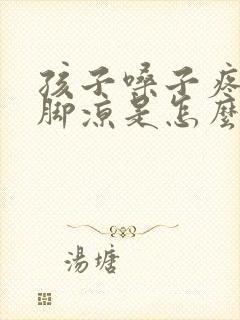 孩子嗓子疼
脚凉是怎麼
湯塘